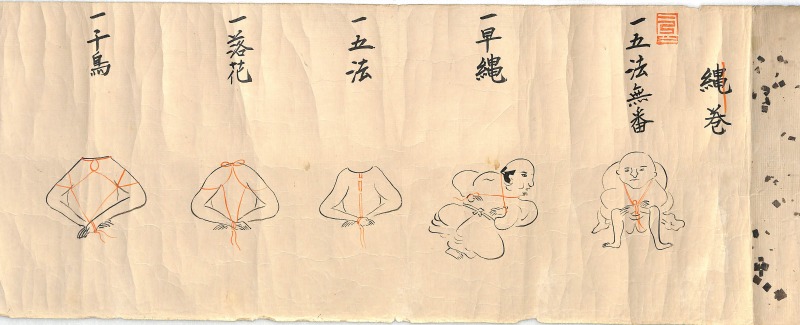 縄巻
一五法無番
一早縄
一五法
一落花
一千鳥